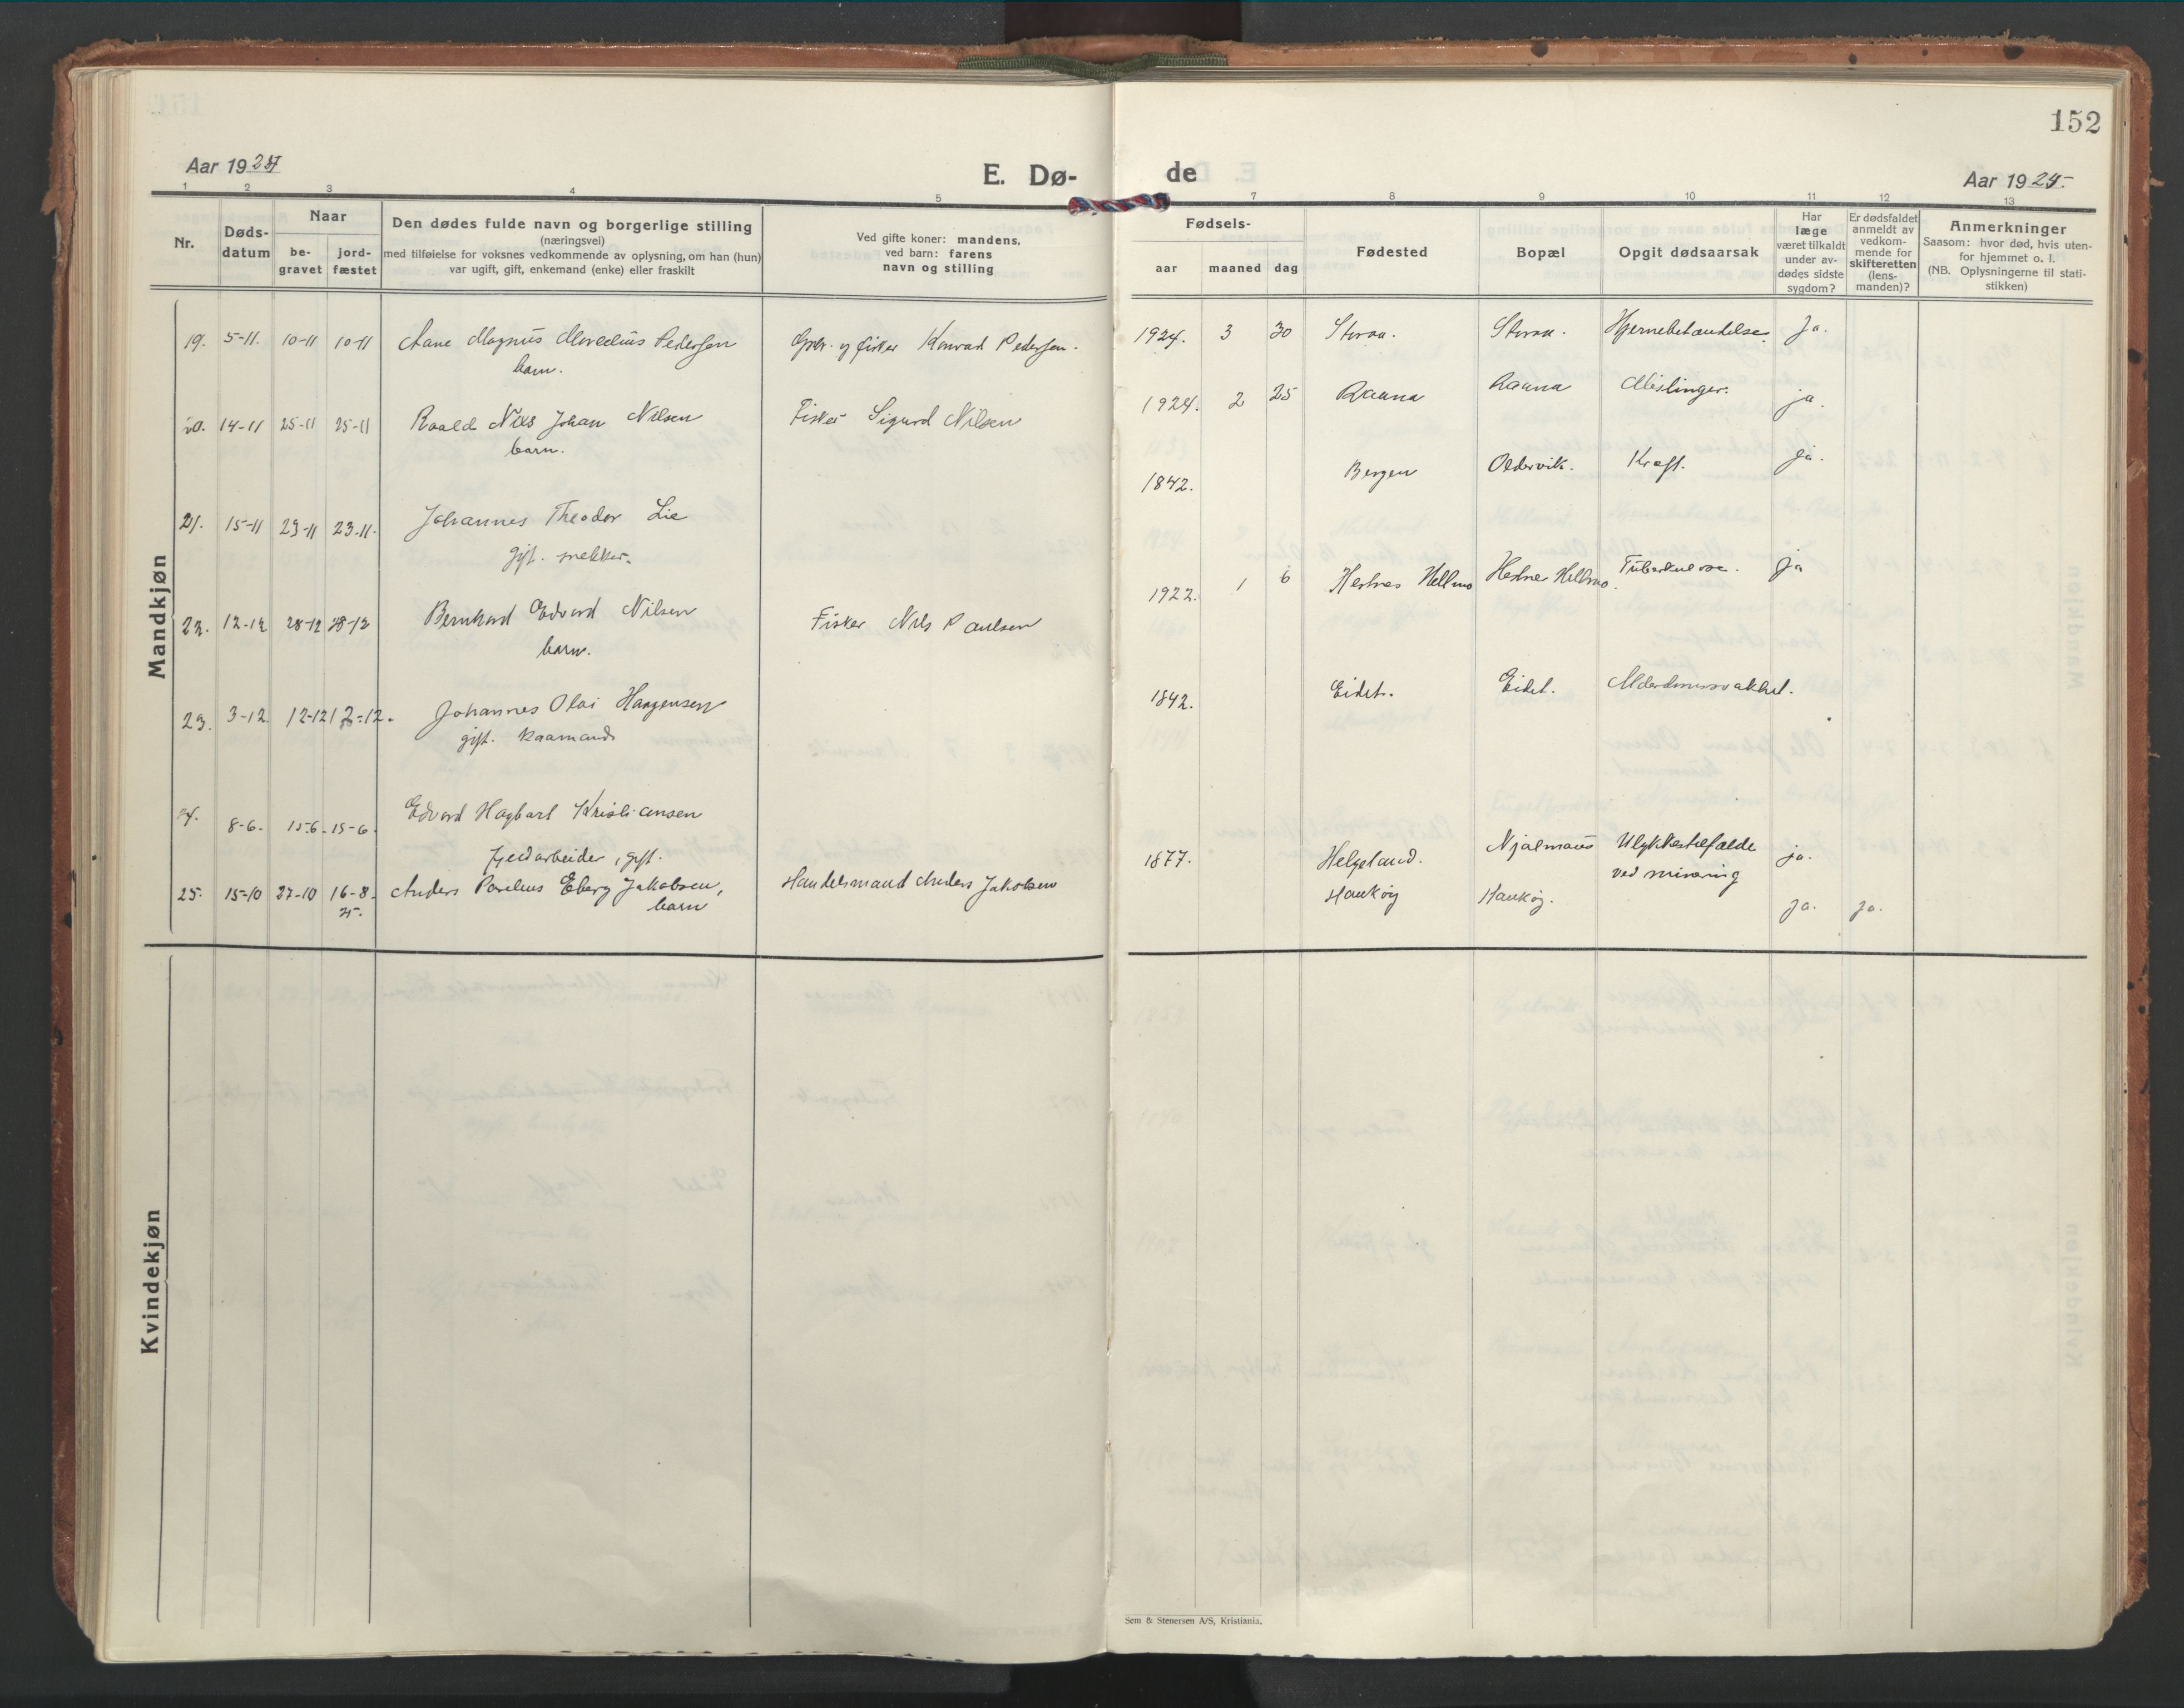 152
Aar 1924
E. Dø-
de
Aar 1924.
1 2 3 4 5 7 8 9 10 11 12 13
Nr.
Døds-
datum
Naar
be-
gravet
jord-
fæstet
Den dødes fulde navn og borgerlige stilling
(næringsvei)
med tilføielse for voksnes vedkommende av oplysning, om han (hun)
var ugift, gift, enkemand (enke) eller fraskilt
Ved gifte koner: mandens,
ved barn: farens
navn og stilling
Fødsels-
aar maaned dag
Fødested
Bopæl
Opgit dødsaarsak
Har
læge
været tilkaldt
under av-
dødes sidste
sygdom?
Er dødsfaldet
anmeldt av
vedkom-
mende for
skifteretten
(lens-
manden)?
Anmerkninger
Saasom: hvor død, hvis uten-
for hjemmet o. l.
(NB. Oplysningerne til stati-
stikken)
Mandkjøn
19. 5-11. 10-11 10-11 Magnus Pedersen Gbr. og fisker Konrad Pedersen. 1924. 3 30 Storaa. Storaa. Hjernebetændelse. Ja.
barn.
20. 14-11 25-11 25-11 Roald Nils Johan Nilsen Fisker Sigurd Nilsen 1924. 2 25 Raana Raana Mislinger. ja.
barn.
21. 15-11 23-11 23-11. Johannes Theodor Lie 1842. Bergen Oldervik. Kræft. Ja.
gift.
22. 12-12 28-12 28-12 Bernhard Edvard Nilsen Fisker Nils Paulsen 1922. 1 6 Hestnes Hellmo Hestnes Hellmo. Tuberkulose. ja
barn.
23. 3-12 12-12 12-12. Johannes Olai Haagensen 1842. Eidet. Eidet. Alderdomssvakhet.
gift. kaarmand
24. 8-6. 15-6. 15-6. Edvard Hagbart Kristiansen
arbeider, gift. 1877. Helgeland. Njalmaas Ulykkestilfælde ja.
ved minering
25. 15-10 27-10 16-8. Anders Eberg Jakobsen, Handelsmand Anders Jakobsen Haukøy Haukøy. ja. ja.
25. barn
Kvindekjøn
Sem & Stenersen A/S, Kristiania.